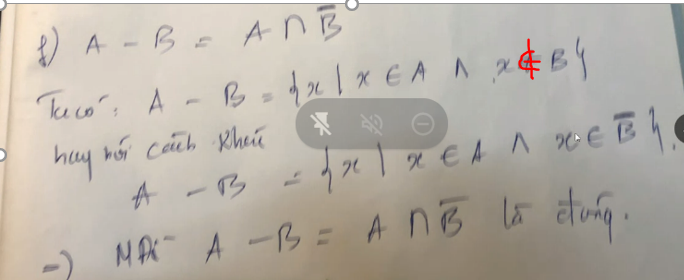 f) A - B = A ∩ B̅
Ta có: A - B = {x | x ∈ A ∧ x ∉ B}
hay nói cách khác
A - B = {x | x ∈ A ∧ x ∈ B̅}.
=) A - B = A ∩ B̅ là đúng.